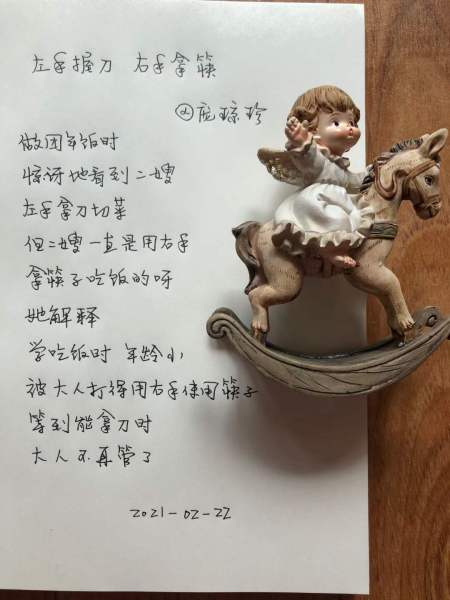 左手握刀 右手拿筷
@庞琼珍
做团年饭时
惊讶地看到二嫂
左手拿刀切菜
但二嫂一直是用右手
拿筷子吃饭的呀
她解释
学吃饭时 年龄小
被大人打得用右手使用筷子
等到能拿刀时
大人不再管了
2021-02-22